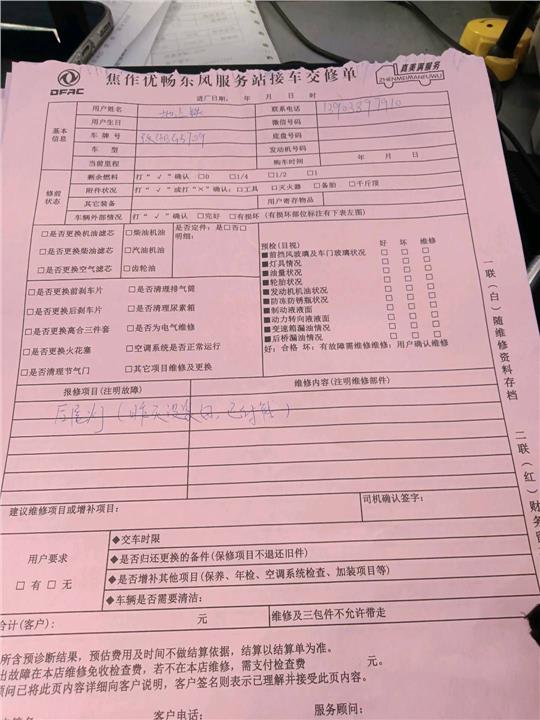 DFAC
焦作优畅东风服务站接车交修单
真美满服务
ZHENMEIMANFUWU
进厂日期： 年 月 日 时
基本信息
用户姓名
联系电话
用户生日
微信号码
车牌号
底盘号码
车 型
发动机号码
当前里程
购车时间 年 月 日
修前状态
剩余燃料 打“√”确认 □0 □1/4 □1/2 □1
附件状况 打“√”或打“×”确认：□工具 □灭火器 □备胎 □千斤顶
其它装备 用户寄存物品
车辆外部情况 打“√”确认 □完好 □有损坏（有损坏部位标注有下表左图）
□是否更换机油滤芯 □柴油机油 是否定件：是□否□
明细：
□是否更换柴油滤芯 □汽油机油
□是否更换空气滤芯 □齿轮油
□是否更换前刹车片 □是否清理排气筒
□是否更换后刹车片 □是否清理尿素箱
□是否更换离合三件套 □是否为电气维修
□是否更换火花塞 □空调系统是否正常运行
□是否清理节气门 □其它项目维修及更换
预检(目视) 好 坏 维修
■前挡风玻璃及车门玻璃状况 □ □ □
■灯具情况 □ □ □
■油量状况 □ □ □
■轮胎状况 □ □ □
■发动机机油状况 □ □ □
■防冻防锈瓶状况 □ □ □
■制动液液面 □ □ □
■动力转向液液面 □ □ □
■变速箱漏油情况 □ □ □
■后桥漏油情况 □ □ □
好：合格 坏：有故障需维修维修：用户确认维修
报修项目(注明故障) 维修内容(注明维修部件)
后尾灯
建议维修项目或增补项目： 司机确认签字：
用户要求
□ 有 □ 无
◆交车时限
◆是否归还更换的备件(保修项目不退还旧件)
◆是否增补其他项目(保养、年检、空调系统检查、加装项目等)
◆车辆是否需要清洁：
合计(客户)： 元 维修及三包件不允许带走
所含预诊断结果，预估费用及时间不做结算依据，结算以结算单为准。
出故障在本店维修免收检查费，若不在本店维修，需支付检查费 元。
顾问已将此页内容详细向客户说明，客户签名则表示已理解并接受此页内容。
客户电话： 服务顾问：
一联（白）随维修资料存档
二联（红）财务